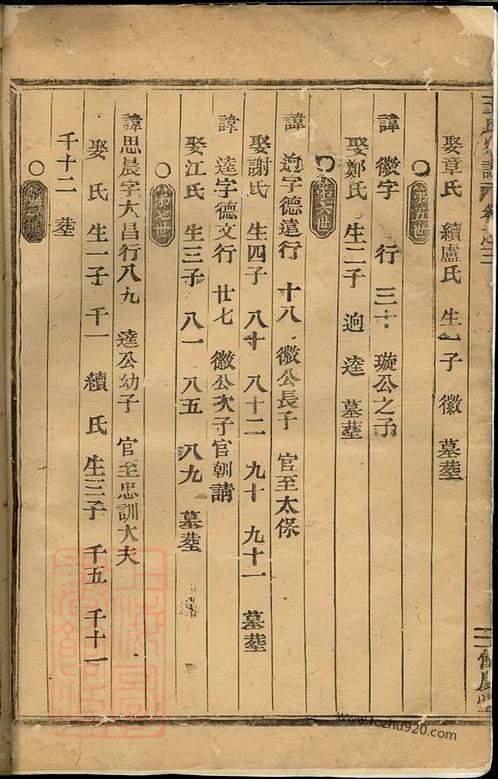 娶章氏 續盧氏 生一子 徽 墓塟
第五世
諱徽字 行 三十 璇公之子
娶鄭氏 生二子 逈 逵 墓塟
第六世
諱 逈字德遠行 十八 徽公長子 官至太保
娶謝氏 生四子 八十 八十二 九十 九十一 墓塟
諱 逵字德文行 廿七 徽公次子官朝請
娶江氏 生三子 八一 八五 八九 墓塟
第七世
諱思晨字大昌行八九 逵公幼子 官至忠訓大夫
娶 氏 生一子 千一 續 氏 生三子 千五 千十一
千十二 塟
上海圖書館藏
www.fozhu920.com